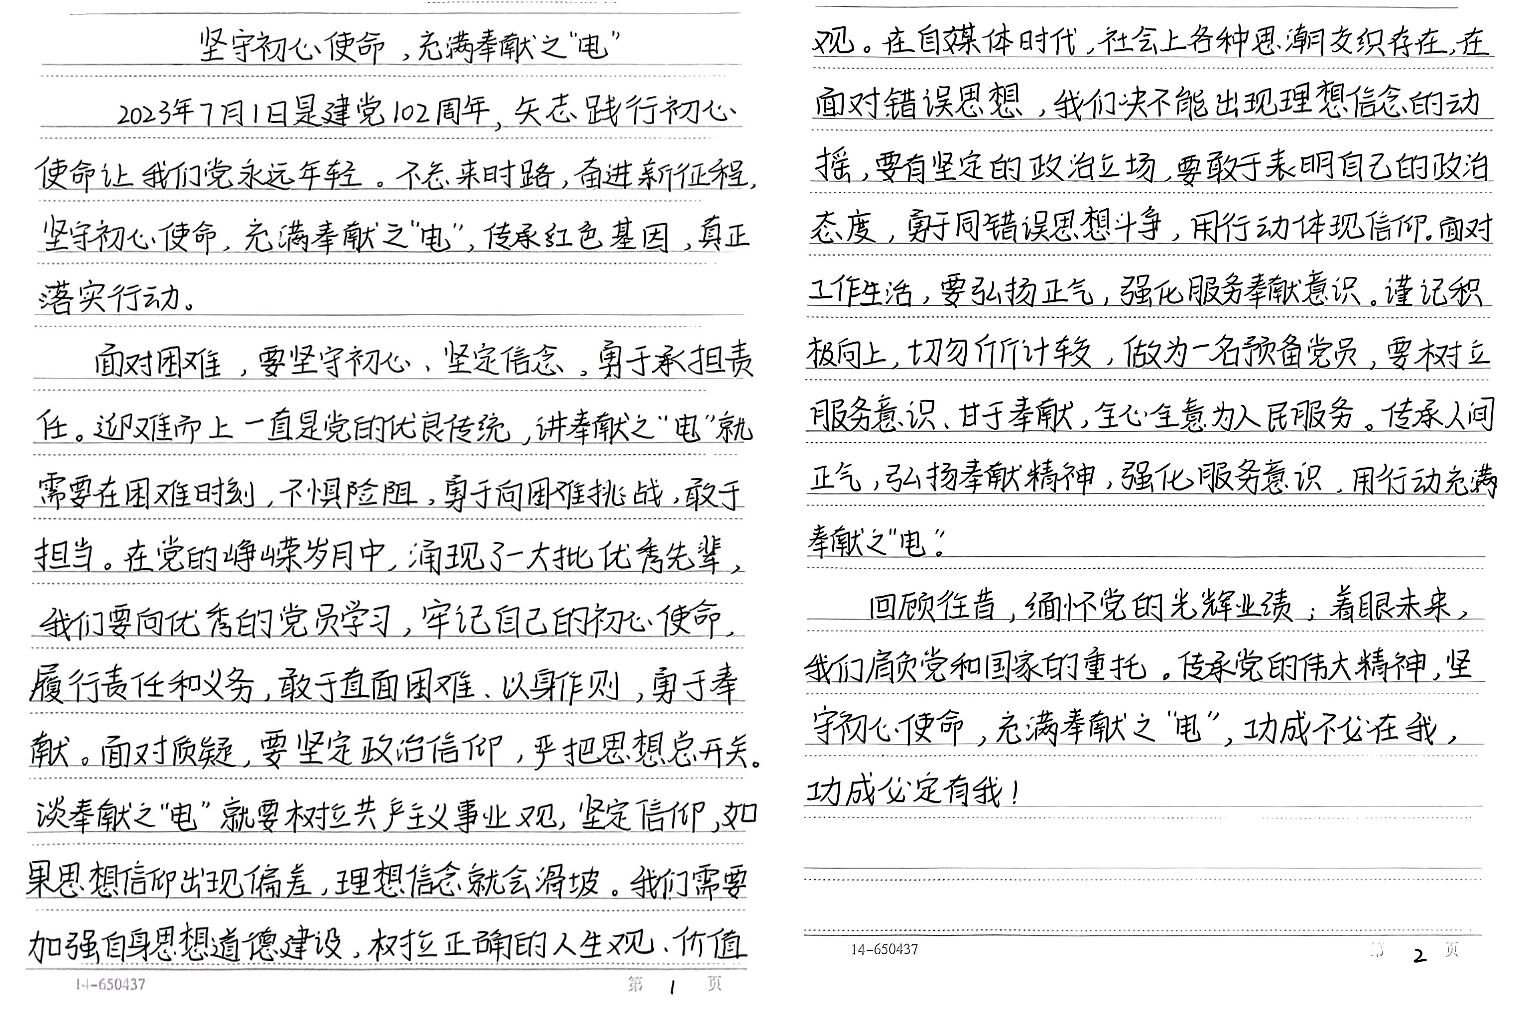 坚守初心使命，充满奉献之“电”
2023年7月1日是建党102周年，矢志践行初心
使命让我们党永远年轻。不忘来时路，奋进新征程，
坚守初心使命，充满奉献之“电”，传承红色基因，真正
落实行动。
面对困难，要坚守初心、坚定信念，勇于承担责
任。迎难而上一直是党的优良传统，讲奉献之“电”就
需要在困难时刻，不惧险阻，勇于向困难挑战，敢于
担当。在党的峥嵘岁月中，涌现了一大批优秀先辈，
我们要向优秀的党员学习，牢记自己的初心使命，
履行责任和义务，敢于直面困难、以身作则，勇于奉
献。面对质疑，要坚定政治信仰，严把思想总开关。
谈奉献之“电”就要树立共产主义事业观，坚定信仰，如
果思想信仰出现偏差，理想信念就会滑坡。我们需要
加强自身思想道德建设，树立正确的人生观、价值
14-650437
第 1 页
观。在自媒体时代，社会上各种思潮交织存在，在
面对错误思想，我们决不能出现理想信念的动
摇，要有坚定的政治立场，要敢于表明自己的政治
态度，勇于同错误思想斗争，用行动体现信仰。面对
工作生活，要弘扬正气，强化服务奉献意识。谨记积
极向上，切勿斤斤计较，做为一名预备党员，要树立
服务意识、甘于奉献，全心全意为人民服务。传承人间
正气，弘扬奉献精神，强化服务意识，用行动充满
奉献之“电”。
回顾往昔，缅怀党的光辉业绩；着眼未来，
我们肩负党和国家的重托。传承党的伟大精神，坚
守初心使命，充满奉献之“电”，功成不必在我，
功成必定有我！
14-650437
第 2 页